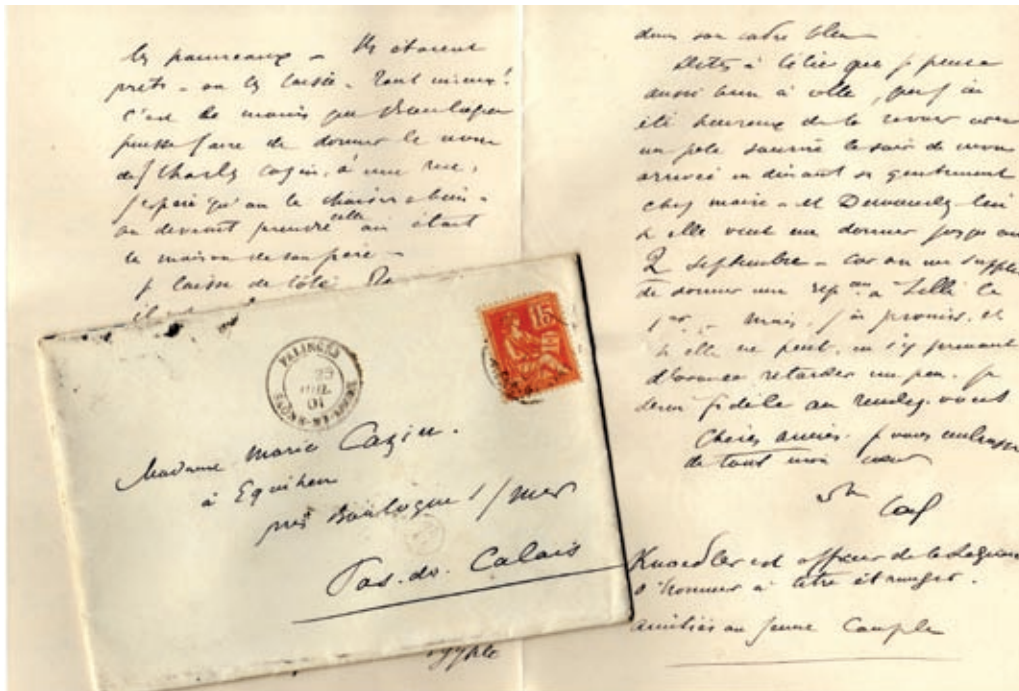 les panneaux _ Ils étaient
prêts _ on les laisse _ Tant mieux!
C'est le moins que Boulogne
puisse faire de donner le nom
de Charles Cazin, à une rue,
j'espère qu'on le choisira bien _
on devrait prendre celle où était
la maison de son père _
Je laisse de côté
il est
PALINGES
25
JUIL
01
SAONE-ET-LOIRE
15
Madame Marie Cazin.
à Equihen
près Boulogne s/mer
Pas. de. Calais
dans son cadre bleu _
Dites à que je pense
aussi bien à elle, que j'ai
été heureux de la revoir avec
un pâle sourire le soir de mon
arrivée en dînant si gentiment
chez Marie _ et Demandez-lui
si elle veut me donner jusqu'au
2 septembre _ car on me supplie
de donner une repon à Lille le
1er _ Mais, j'ai promis, et
si elle ne peut, en s'y prenant
d'avance retarder un peu. je
serai fidèle au rendez-vous
Chères amies. je vous embrasse
de tout mon cœur
Knoedler est officier de la Légion
d'honneur à titre étranger.
amitiés au jeune Couple